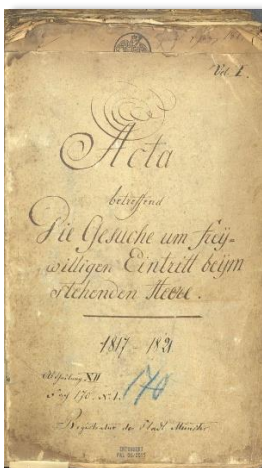 Vol. I.
Acta
betreffend
Die Gesuche um frey=
willigen Eintritt beijm
stehenden Heere.
1817 - 1821
Abtheilung XII
Fach 170. N. 1.
170
Registratur der Stadt Münster